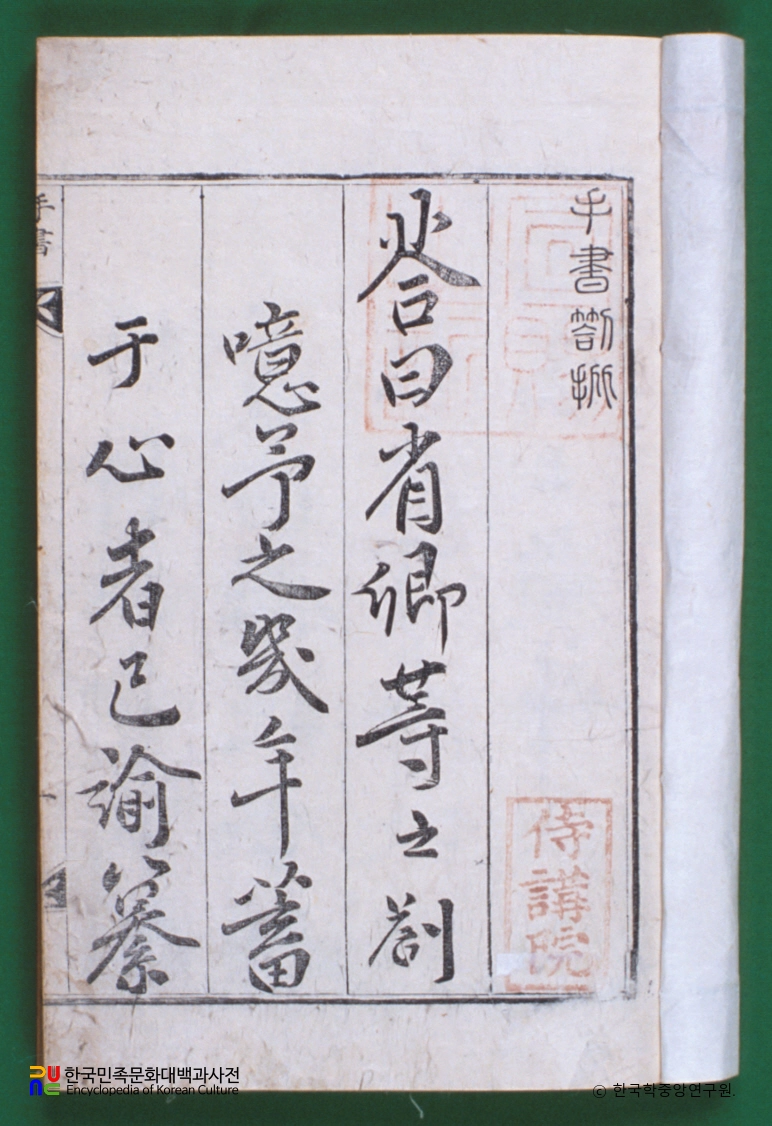 手書劄批
侍講院
答曰省卿等之劄
噫予之幾年蓄
于心者已諭纂
手書
한국민족문화대백과사전
Encyclopedia of Korean Culture
© 한국학중앙연구원.